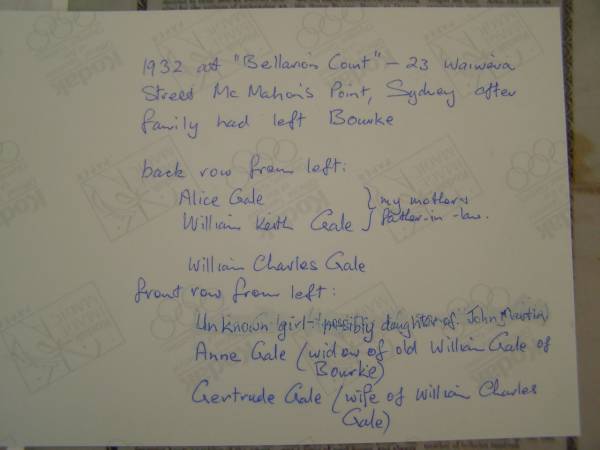 1932 at "Bellario's Court" - 23 Waiwera
Street McMahon's Point, Sydney after
family had left Bourke
back row from left:
Alice Gale } my mother &
William Keith Gale } father-in-law.
William Charles Gale
front row from left:
Unknown girl - possibly daughter of John Martin
Anne Gale (widow of old William Gale of
Bourke)
Gertrude Gale (wife of William Charles
Gale)
Kodak